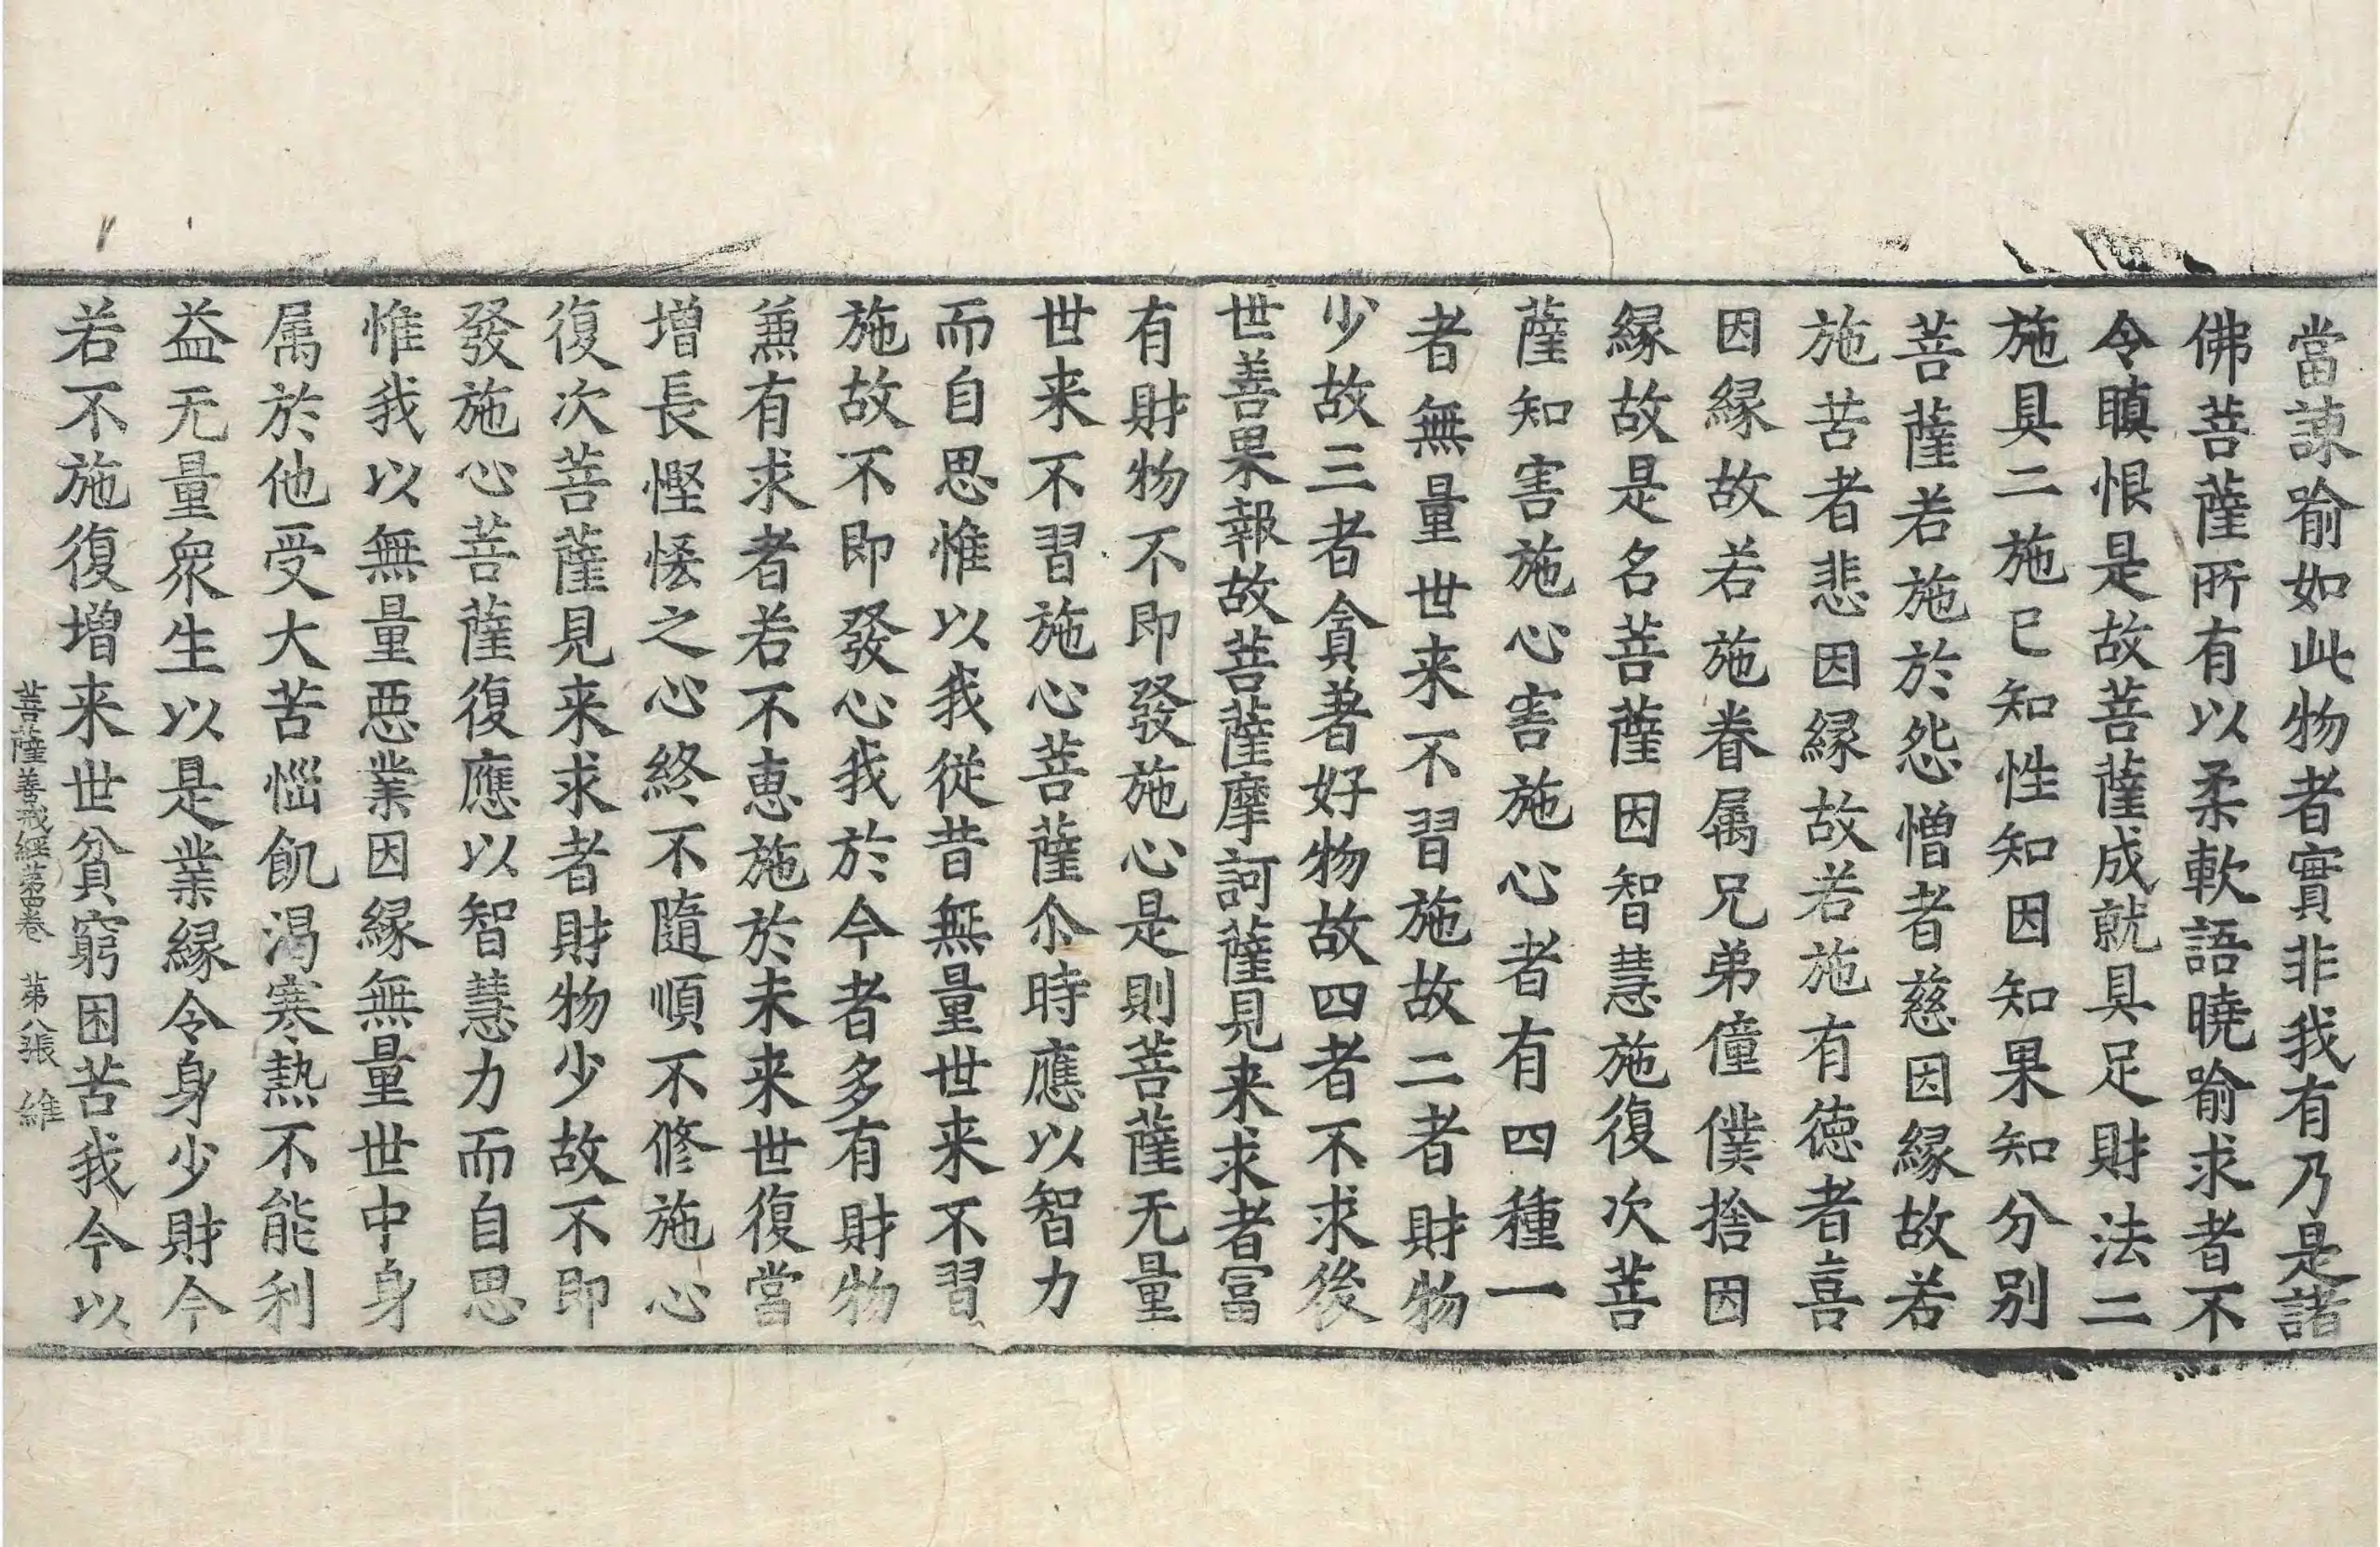 當諌喻如此物者實非我有乃是諸
佛菩薩所有以柔軟語曉喻求者不
令瞋恨是故菩薩成就具足財法二
施具二施已知性知因知果知分別
菩薩若施於怨憎者慈因縁故若
施苦者悲因縁故若施有徳者喜
因縁故若施眷属兄弟僮僕捨因
縁故是名菩薩因智慧施復次菩
薩知害施心害施心者有四種一
者無量世来不習施故二者財物
少故三者貪著好物故四者不求後
世善果報故菩薩摩訶薩見来求者冨
有財物不即發施心是則菩薩无量
世来不習施心菩薩尒時應以智力
而自思惟以我從昔無量世来不習
施故不即發心我於今者多有財物
兼有求者若不恵施於未来世復當
増長慳悋之心終不隨順不修施心
復次菩薩見来求者財物少故不即
發施心菩薩復應以智慧力而自思
惟我以無量悪業因縁無量世中身
属於他受大苦惱飢渇寒熱不能利
益无量衆生以是業縁令身少財今
若不施復増来世貧窮困苦我今以
菩薩善戒經苐四卷 苐八張 維